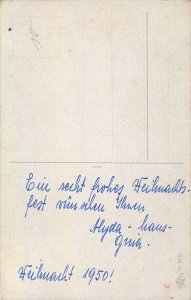 Ein recht frohes Weihnachts-
fest wünschen Ihnen
Alyda - hans-
Gina.
Weihnacht 1950!